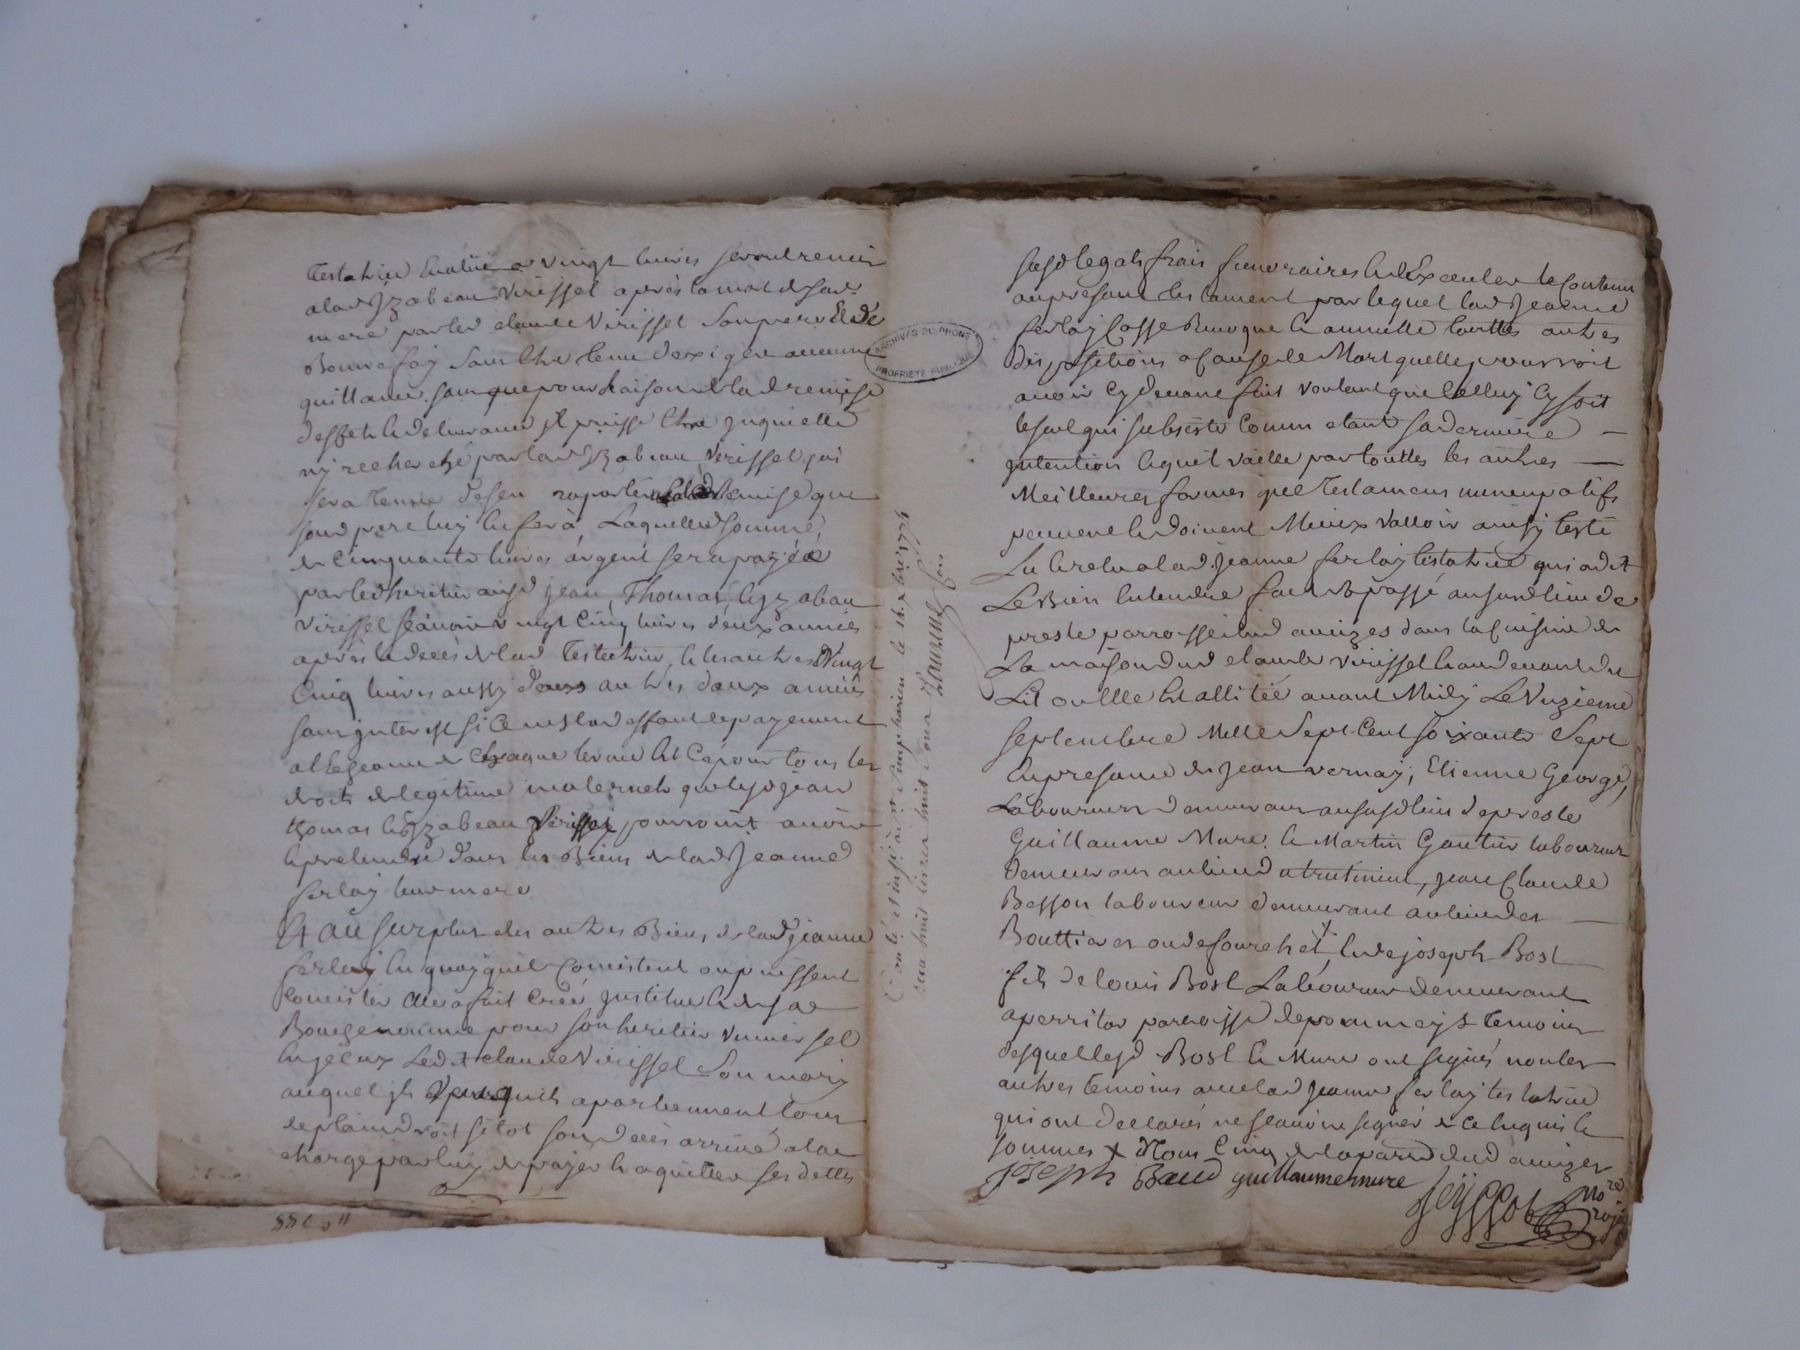 Testatrice Evalué a vingt livres seront remis
alad Izabeau Virissel après la mort de sad
mere par led claude Virissel son pere Et de
Bonne foy sans Etre tenu dexiger aucune
quittance sans que pour Raison de lad remise
deffets et delivrance il puisse Etre inquietté
ny recherché par lad Izabeau Virissel qui
sera tenue de sen raporter a la Remise que
sond pere luy En fera Laquelle somme
de Cinquante livres argent sera payée
par led heritier ausd jean Thomas et Izabeau
Virissel scavoir vingt Cinq livres deux années
après le deces de lad Testatrice, et les autres Vingt
Cinq livres aussy deux autres deux années
sans interest si ce nest a deffaut de payement
allégeance de Chaque terme Et Ce pour tous les
droits de legitime maternels que lesd jean
thomas et Izabeau Virissel pourroint avoir
et pretendre dans les Biens de lad Jeanne
ferlay leur mere
Et au surplus des autres Biens de lad jeanne
ferlay En quoy quils Consistent ou puissent
Consister Elle a fait Créé institue et de sa
Bouche nommé pour son heritier universel
Led claude Virissel Son mary
auquel ils apartiennent tous
de plain droit sitot son deces arrivé a la
charge par luy de payer et aquitter ses dettes
ARCHIVES DU RHÔNE
PROPRIÉTÉ PUBLIQUE
1774
susd legats frais funeraires et dExecuter le Contenu
au present testament par lequel lad Jeanne
ferlay Casse Revoque et annulle touttes autres
dispositions a Cause de Mort quelle pourroit
avoir Cy devant fait voulant que Celluy Cy soit
le seul qui subsiste Comm etant sa derniere
intention lequel vaille par touttes les autres
Meilleures formes que Testamens nuncupatifs
peuvent et doivent Mieux valloir ainsy testé
Lu et relu a lad. Jeanne ferlay testatrice qui a dit
Le Bien Entendre fait et passé au susd lieu de
presle parroisse dud aveizes dans la Cuisine de
La maison dud claude Virissel et au devant du
Lit ou Elle Est allitée avant Midy Le Unzieme
septembre Mille Sept Cent soixante Sept
En presence de jean vernay, Etienne George,
Laboureurs demeurans au susd lieu de presle
Guillaume Mure et Martin Gautier laboureurs
demeurans au lieud , jean Claude
Besson laboureur demeurant au lieu des
Bouttieres ou de fourchet, et de joseph Bost
fils de louis Bost Laboureur demeurant
parroisse de pommeys temoins
desquels lesd Bost et Mure ont signés non les
autres temoins avec lad jeanne ferlay testatrice
qui ont declarés ne scavoir signer de Ce Enquis et
sommes
Joseph guillaume mure